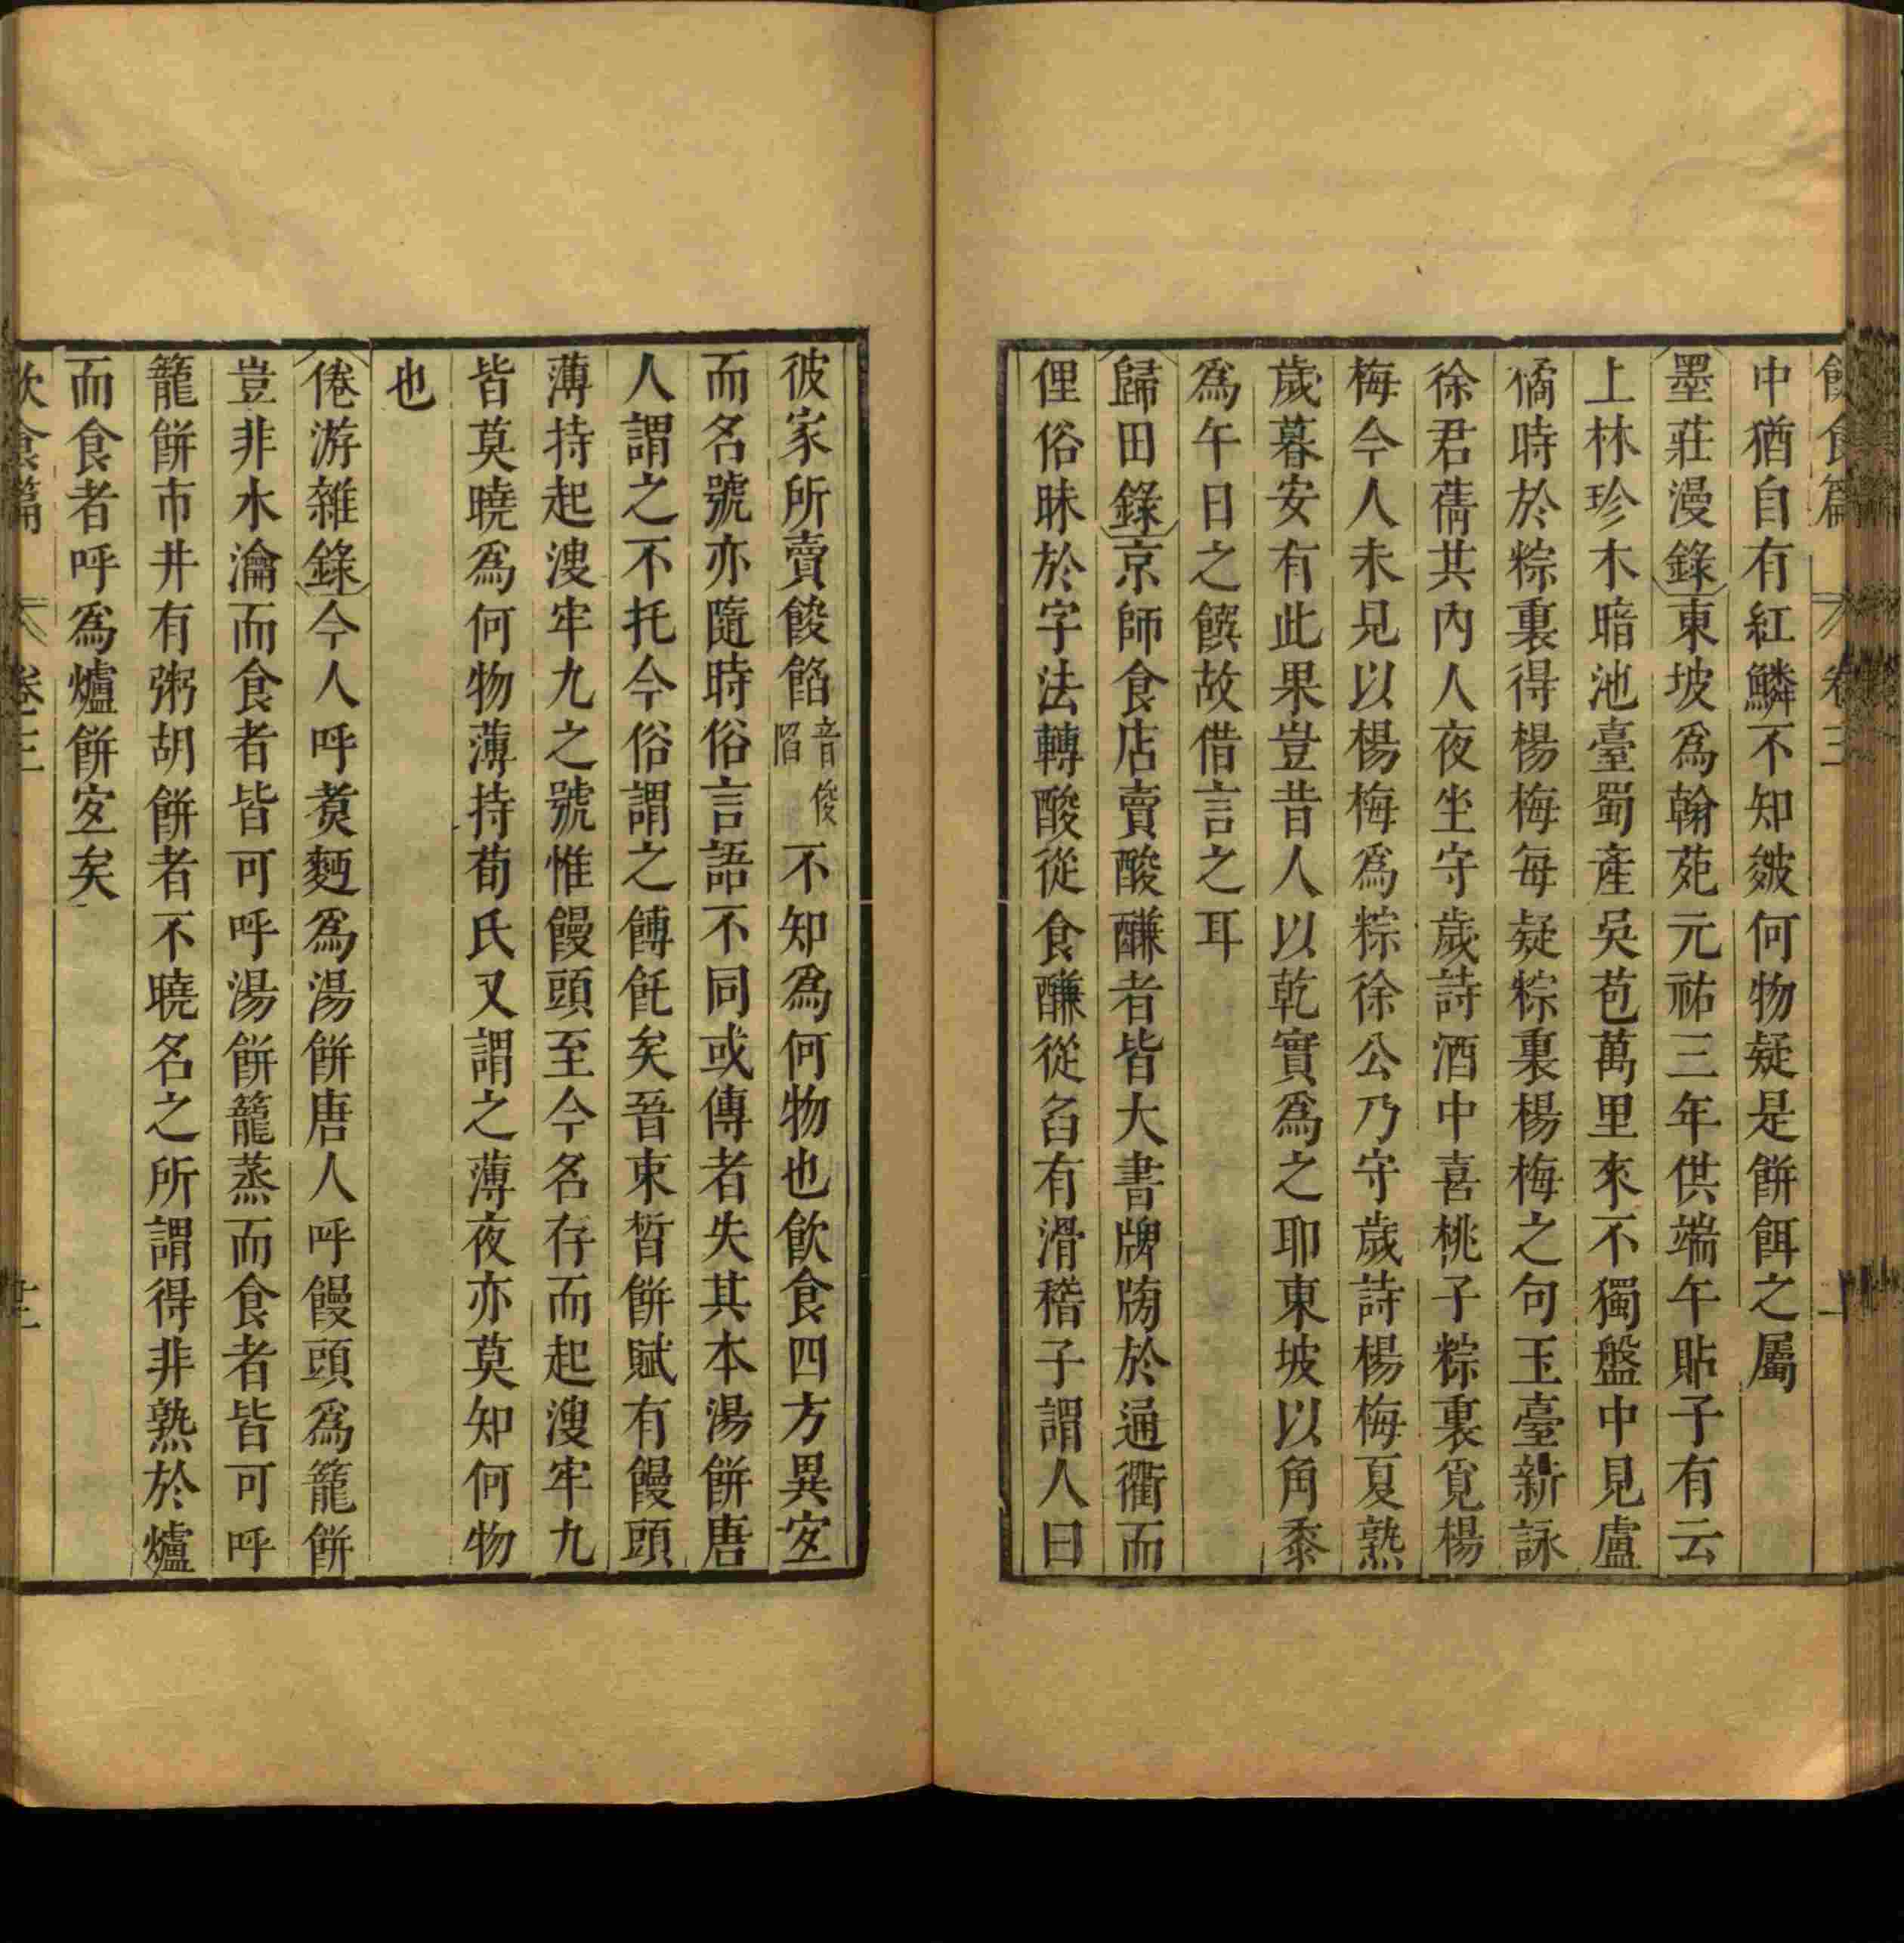 飲食篇 卷三
中猶自有紅鱗不知皴何物疑是餅餌之屬
墨莊漫錄東坡爲翰苑元祐三年供端午貼子有云
上林珍木暗池臺蜀產吳苞萬里來不獨盤中見盧
橘時於粽裏得楊梅每疑粽裏楊梅之句玉臺新詠
徐君蒨共內人夜坐守歲詩酒中喜桃子粽裏覓楊
梅今人未見以楊梅爲粽徐公乃守歲詩楊梅夏熟
歲暮安有此果豈昔人以乾實爲之耶東坡以角黍
爲午日之饌故借言之耳
歸田錄京師食店賣酸䭑者皆大書牌牓於通衢而
俚俗昧於字法轉酸從食䭑從臽有滑稽子謂人曰
彼家所賣餕餡音俊陷不知爲何物也飲食四方異宐
而名號亦隨時俗言語不同或傳者失其本湯餅唐
人謂之不托今俗謂之餺飥矣晉束晳餅賦有饅頭
薄持起溲牢九之號惟饅頭至今名存而起溲牢九
皆莫曉爲何物薄持荀氏又謂之薄夜亦莫知何物
也
倦游雜錄今人呼煑麪爲湯餅唐人呼饅頭爲籠餅
豈非水瀹而食者皆可呼湯餅籠蒸而食者皆可呼
籠餅市井有粥胡餅者不曉名之所謂得非熟於爐
而食者呼爲爐餅宐矣
飲食篇 卷三